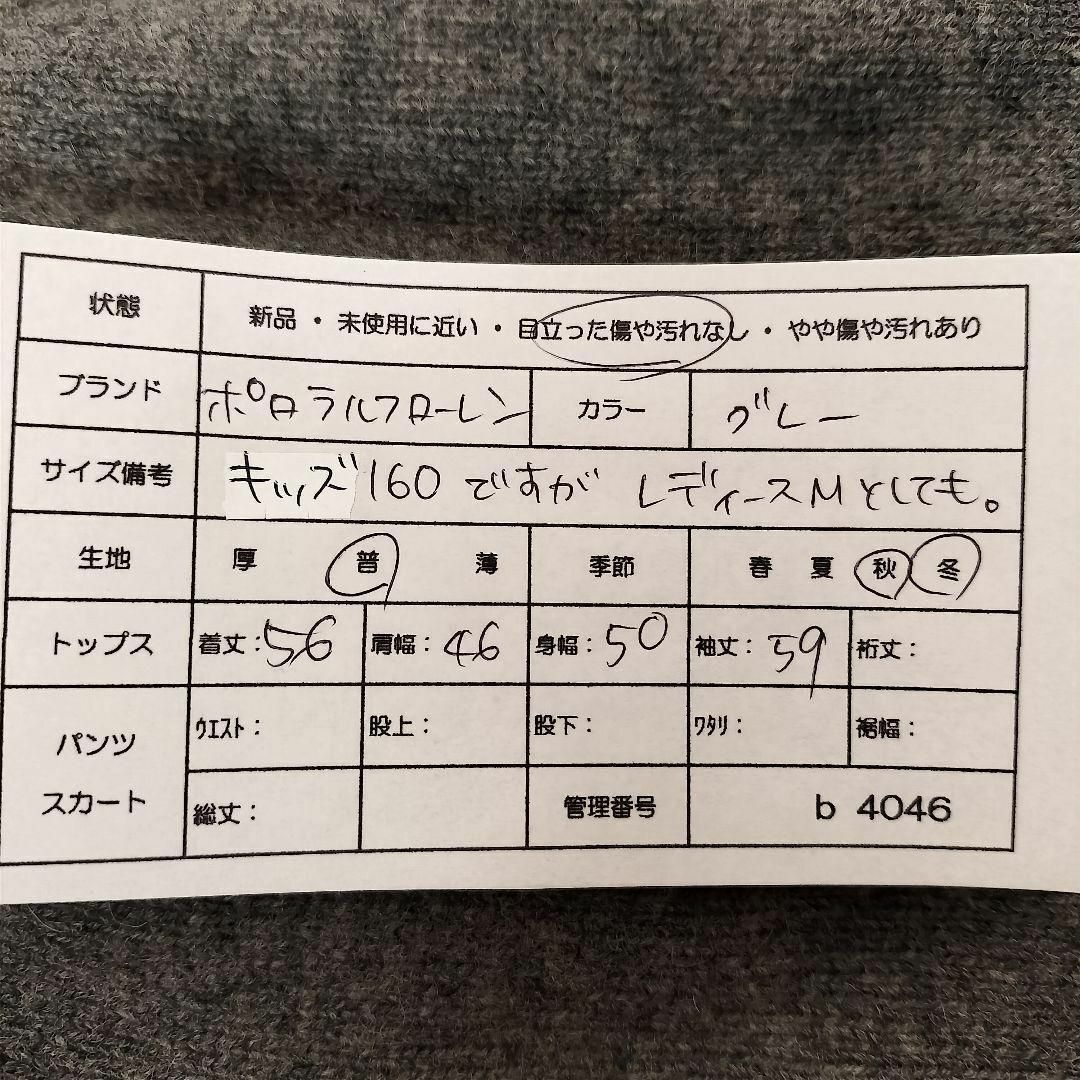 状態 新品 ・ 未使用に近い ・ 目立った傷や汚れなし ・ やや傷や汚れあり
ブランド ポロラルフローレン カラー グレー
サイズ備考 キッズ160ですが レディースMとしても。
生地 厚 普 薄 季節 春 夏 秋 冬
トップス 着丈:56 肩幅:46 身幅:50 袖丈:59 裄丈:
パンツ ウエスト: 股上: 股下: ワタリ: 裾幅:
スカート 総丈: 管理番号 b 4046